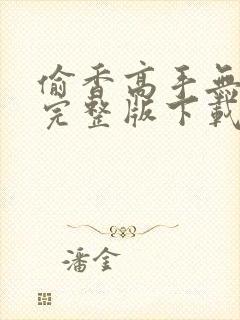 偷香高手無
完整版下載
潘金